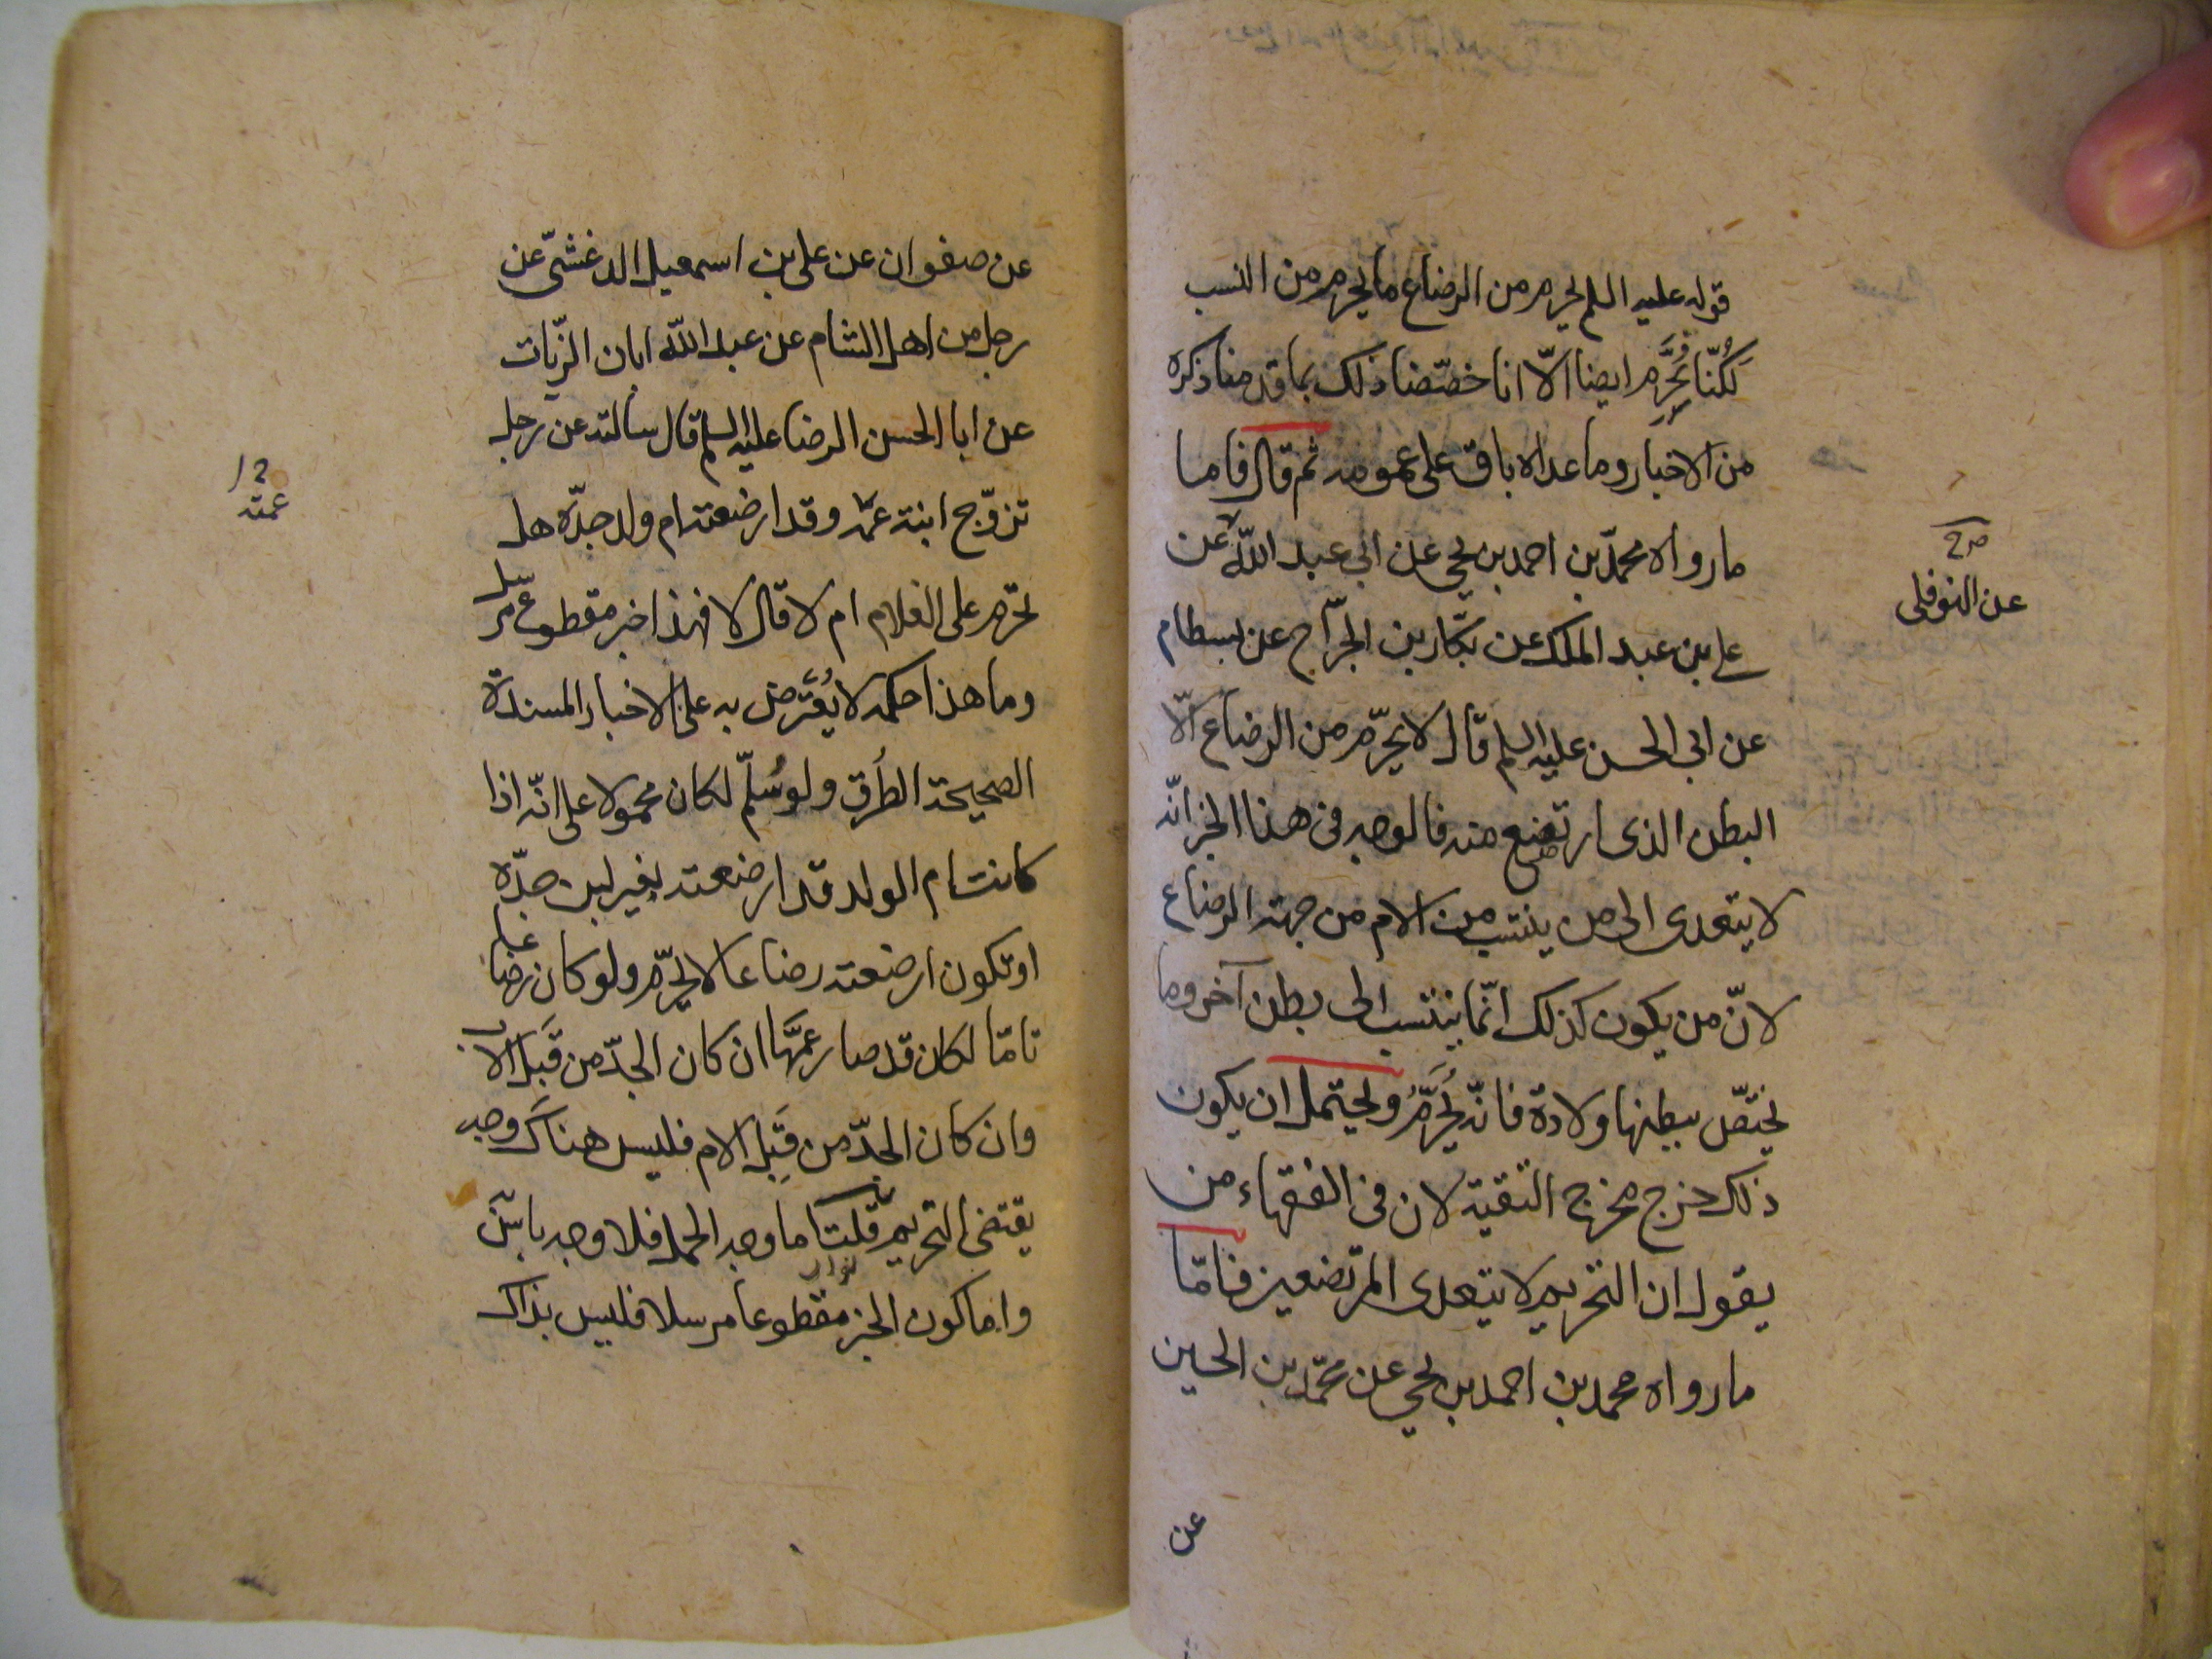 قوله عليه السلم يحرم من الرضاع ما يحرم من النسب
لكُنّا نُحَرّم ايضا الّا انا خصّصنا ذلك بما قدمنا ذكره
من الاخبار وما عداه باق على عمومه ثم قال فاما
ما رواه محمّد بن احمد بن يحيى عن ابى عبد اللّه عن
على بن عبد الملك عن بكّار بن الجرّاح عن بسطام
عن ابى الحسن عليه السلم قال لا يحرّم من الرضاع الّا
البطن الذى ارتضع منه فالوجه فى هذا الخبر انّه
لا يتعدى الى من ينتسب من الام من جهة الرضاع
لانّ من يكون كذلك انّما ينتسب الى بطن آخر وما
يختصّ ببطنها ولادة فانّه يُحَرَّمُ ويحتمل ان يكون
ذلك خرج مخرج التقية لان فى الفقهاء من
يقول ان التحريم لا يتعدى المرتضعين فامّا
ما رواه محمد بن احمد بن يحيى عن محمّد بن الحسين
عن
صح
عن النوفلى
عن صفوان عن على بن اسمعيل الدغشىّ عن
رجل من اهل الشام عن عبد اللّه ابان الزّيات
عن ابا الحسن الرضا عليه السلم قال سالته عن رجل
تزوّج ابنة عمّه وقد ارضعته ام ولد جدّه هل
تحرّم على الغلام ام لا قال لا فهذا خبر مقطوع مرسل
وما هذا حكمه لا يُعْتَرض به على الاخبار المسندة
الصحيحة الطُرق ولو سُلّم لكان محمولا على انّه اذا
كانت ام الولد قد ارضعته بغير لبن جدّه
او تكون ارضعته رضاعا لا يحرّم ولو كان رضاعا
تامّا لكان قد صار عمَّها ان كان الجدّ من قِبَل الاب
وان كان الجدّ من قِبَل الام فليس هناك وجه
يقتضى التحريم قلت اما وجه الحمل فلا وجه
واما كون الخبر مقطوعا مرسلا فليس بذاك
عمته